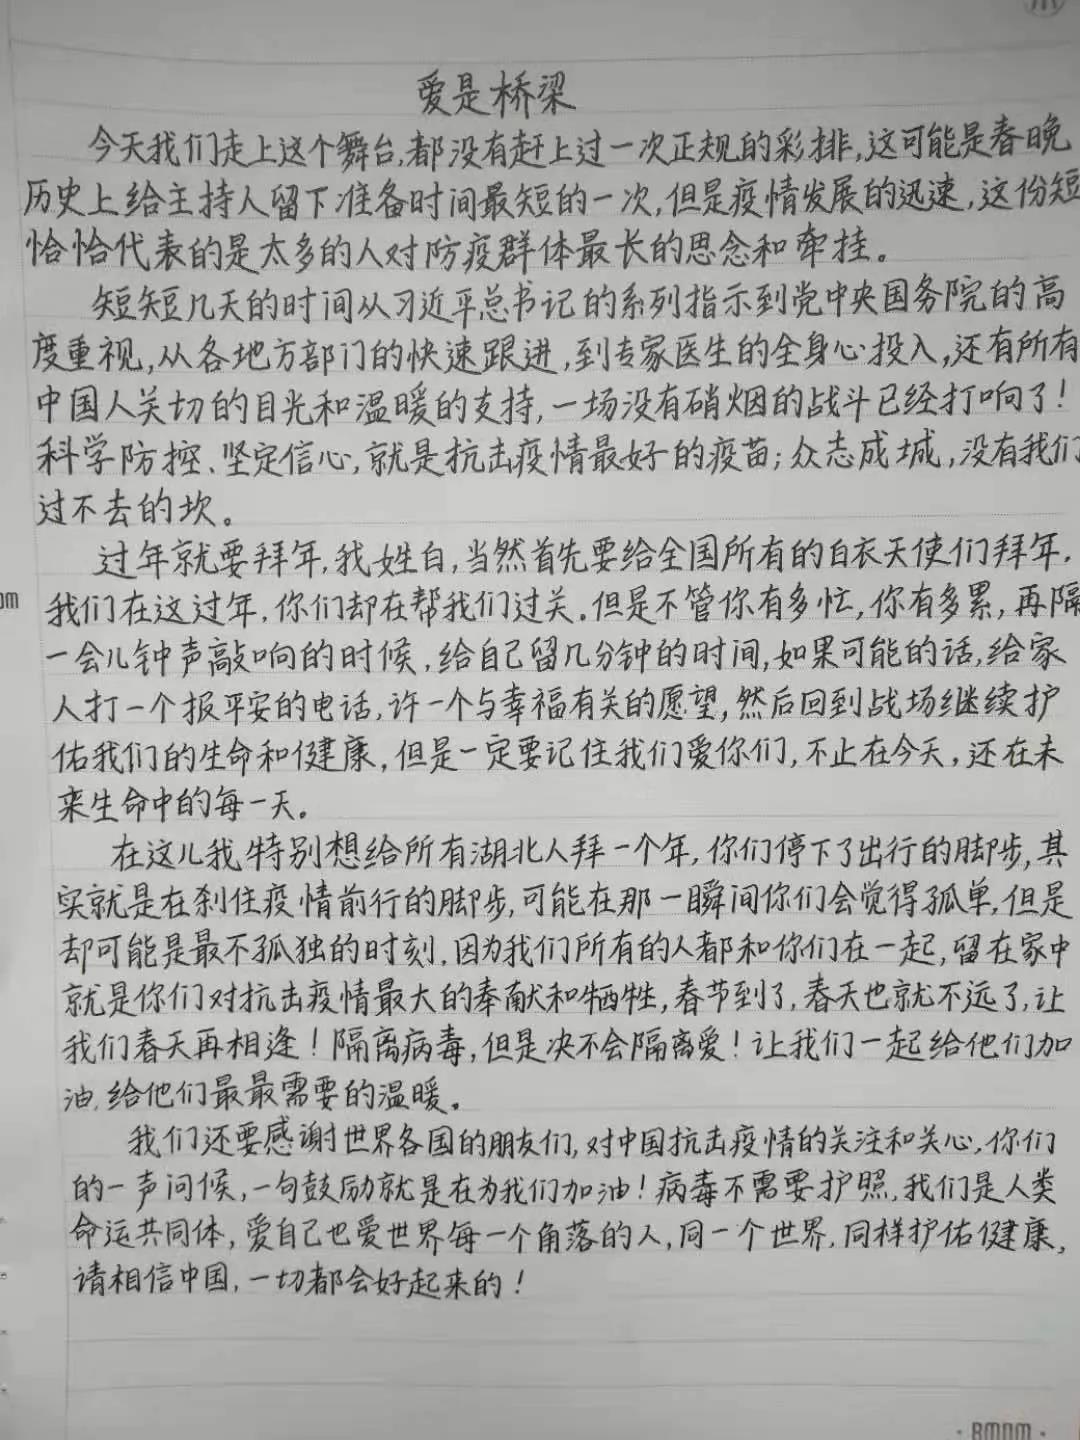 爱是桥梁
今天我们走上这个舞台,都没有赶上过一次正规的彩排,这可能是春晚
历史上给主持人留下准备时间最短的一次,但是疫情发展的迅速,这份短
恰恰代表的是太多的人对防疫群体最长的思念和牵挂。
短短几天的时间从习近平总书记的系列指示到党中央国务院的高
度重视,从各地方部门的快速跟进,到专家医生的全身心投入,还有所有
中国人关切的目光和温暖的支持,一场没有硝烟的战斗已经打响了!
科学防控、坚定信心,就是抗击疫情最好的疫苗;众志成城,没有我们
过不去的坎。
过年就要拜年,我姓白,当然首先要给全国所有的白衣天使们拜年,
我们在这过年,你们却在帮我们过关。但是不管你有多忙,你有多累,再隔
一会儿钟声敲响的时候,给自己留几分钟的时间,如果可能的话,给家
人打一个报平安的电话,许一个与幸福有关的愿望,然后回到战场继续护
佑我们的生命和健康,但是一定要记住我们爱你们,不止在今天,还在未
来生命中的每一天。
在这儿我特别想给所有湖北人拜一个年,你们停下了出行的脚步,其
实就是在刹住疫情前行的脚步,可能在那一瞬间你们会觉得孤单,但是
却可能是最不孤独的时刻,因为我们所有的人都和你们在一起,留在家中
就是你们对抗击疫情最大的奉献和牺牲,春节到了,春天也就不远了,让
我们春天再相逢!隔离病毒,但是决不会隔离爱!让我们一起给他们加
油,给他们最最需要的温暖。
我们还要感谢世界各国的朋友们,对中国抗击疫情的关注和关心,你们
的一声问候,一句鼓励就是在为我们加油!病毒不需要护照,我们是人类
命运共同体,爱自己也爱世界每一个角落的人,同一个世界,同样护佑健康,
请相信中国,一切都会好起来的!
BMDM